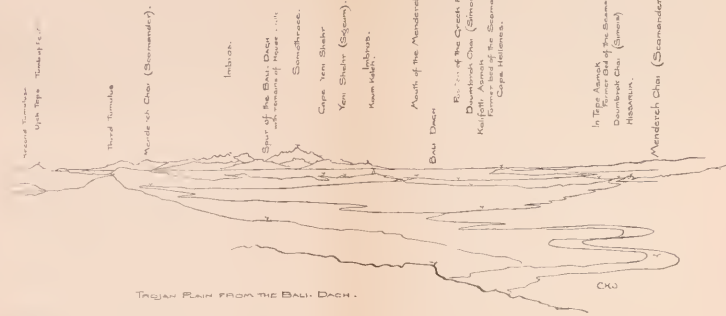 Second Tumulus
Ujek Tepe Tumulus
Third Tumulus
Mendereh Chai (Scamander).
Imbros.
Spur of the Bali. Dagh
with remains of House
Samothrace.
Cape Yeni Shehr
Yeni Shehr (Sigeum).
Imbros.
Koum Kaleh.
Mouth of the Mendere
Bali Dagh
of the Greek
Doumbrek Chai (Simo
Kalifatli Asmak
Former bed of the Scama
Cape Hellenes.
In Tepe Asmak
Former Bed of the Scama
Doumbrek Chai (Simois)
Hissarlik.
Mendereh Chai (Scamander
TROJAN PLAIN FROM THE BALI. DAGH.